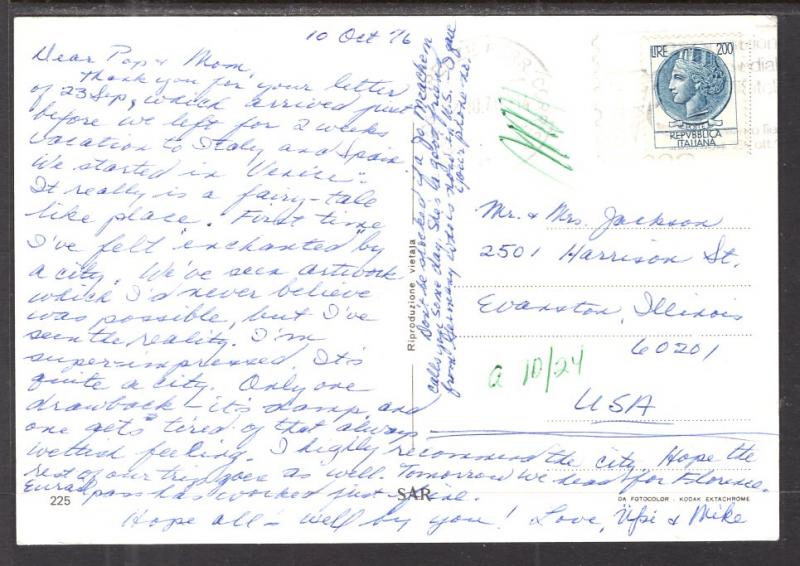 10 Oct 76
Dear Pop & Mom,
Thank you for your letter
of 23 Sep, which arrived just
before we left for 2 weeks
vacation to Italy and Spain.
We started in Venice.
It really is a fairy-tale
like place. First time
I've felt "enchanted" by
a city. We've seen artwork
which I'd never believe
was possible, but I've
seen the reality. I'm
super-impressed. It's
quite a city. Only one
drawback - it's damp and
one gets tired of that always
wettish feeling. I highly recommend the city. Hope the
rest of our trip goes as well. Tomorrow we head for Florence.
Eurailpass has worked just fine.
Hope all's well by you! Love, Uschi & Mike
Don't be shocked if a Jo
calls you some day. She's a good friend
from Germany who is now in U.S. - I gave
your phone nr.
Riproduzione vietata
LIRE 200
REPVBBLICA
ITALIANA
Mr. & Mrs. Jackson
2501 Harrison St.
Evanston, Illinois
60201
USA
a 10/24
225
SAR
DA FOTOCOLOR - KODAK EKTACHROME